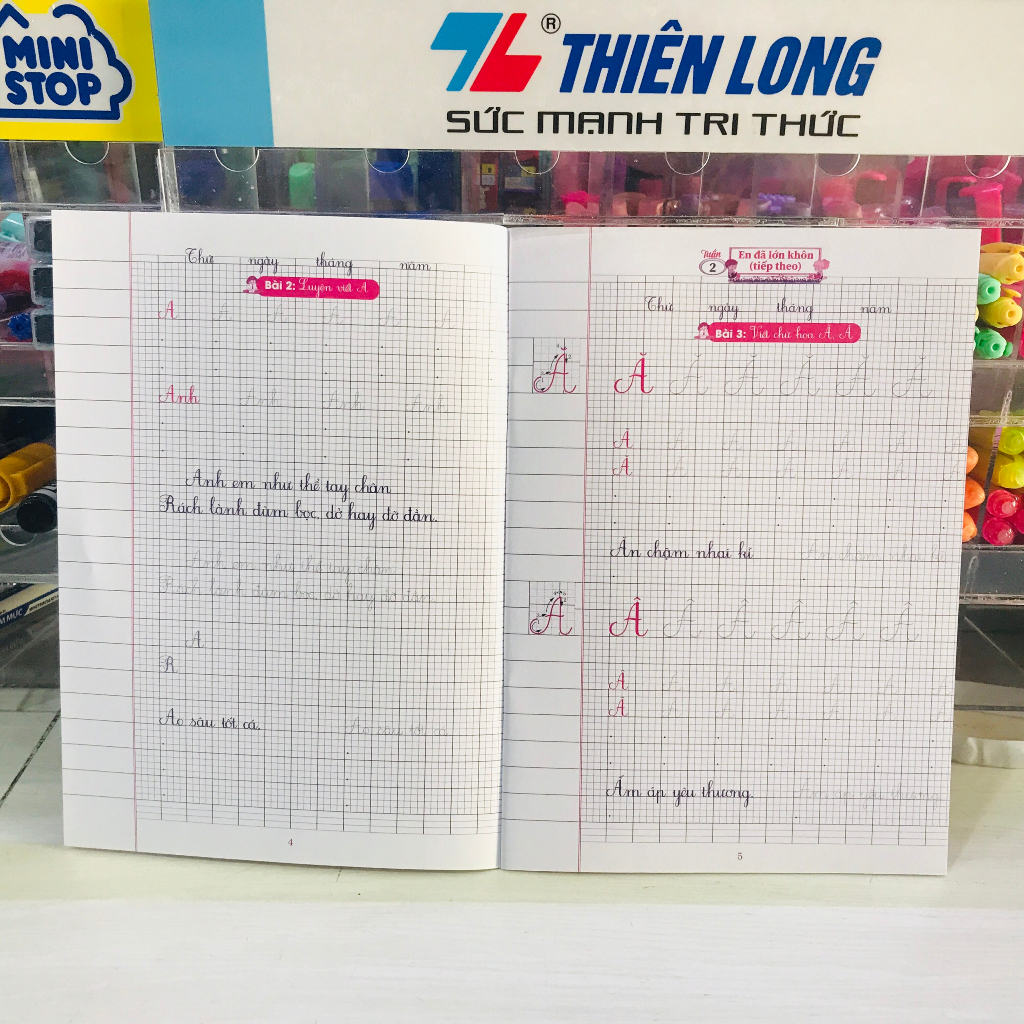 MINI
STOP
® THIÊN LONG
SỨC MẠNH TRI THỨC
Thứ ngày tháng năm
Bài 2: Luyện viết A
A A A A A A
Anh Anh Anh Anh
Anh em như thể tay chân
Rách lành đùm bọc, dở hay đỡ đần.
Anh em như thể tay chân
Rách lành đùm bọc, dở hay đỡ đần.
A
R
Ao sâu tốt cá. Ao sâu tốt cá
4
Tuần
2
En đã lớn khôn
(tiếp theo)
Thứ ngày tháng năm
Bài 3: Viết chữ hoa Ă, Â
Ă Ă Ă Ă Ă Ă Ă
Ă Ă Ă Ă Ă Ă Ă
Ă Ă Ă Ă Ă Ă Ă
Ăn chậm nhai kĩ Ăn chậm nhai kĩ
Â Â Â Â Â Â Â
Â Â Â Â Â Â Â
Â Â Â Â Â Â Â
Ấm áp yêu thương. Ấm áp yêu thương
5